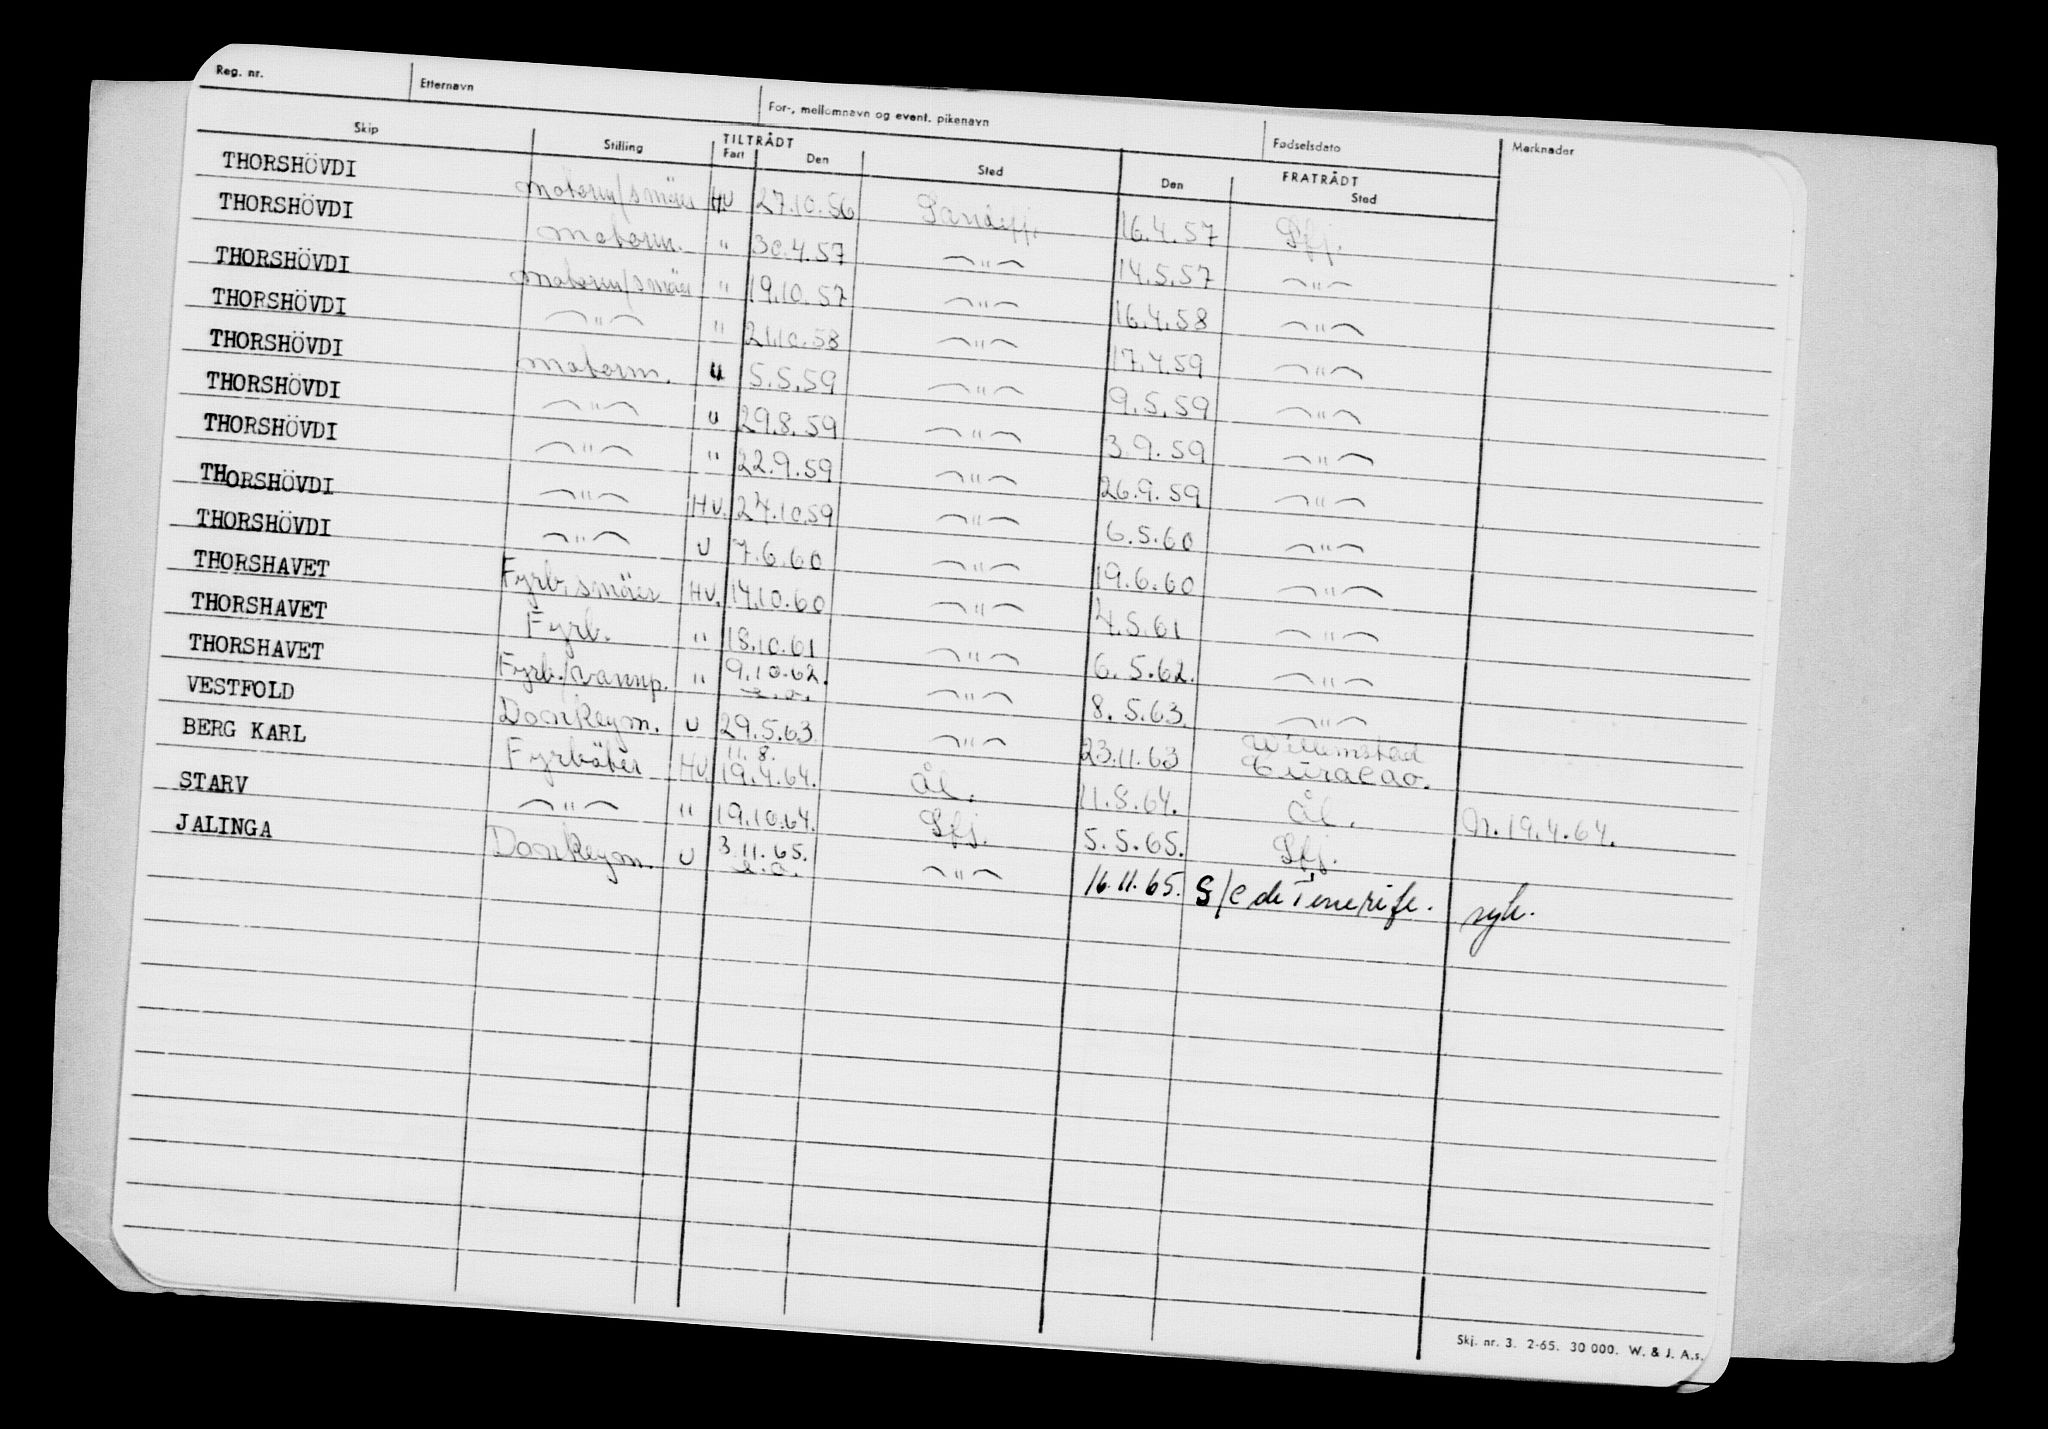 Reg. nr. Etternavn For-, mellomnavn og event. pikenavn Fødselsdato Merknader
Skip Stilling TILTRÅDT FRATRÅDT
Fart Den Sted Den Sted
THORSHÖVDI motorm/smörer HV 27.10.56 Sandefj. 16.4.57 Sfj.
THORSHÖVDI motorm. " 30.4.57 —"— 14.5.57 —"—
THORSHÖVDI motorm/smörer " 19.10.57 —"— 16.4.58 —"—
THORSHÖVDI —"— " 21.10.58 —"— 17.4.59 —"—
THORSHÖVDI motorm. U 5.5.59 —"— 9.5.59 —"—
THORSHÖVDI —"— U 29.8.59 —"— 3.9.59 —"—
THORSHÖVDI —"— " 22.9.59 —"— 26.9.59 —"—
THORSHÖVDI —"— HV. 27.10.59 —"— 6.5.60 —"—
THORSHÖVDI —"— U 7.6.60 —"— 19.6.60 —"—
THORSHAVET Fyrb.smörer HV. 14.10.60 —"— 4.5.61 —"—
THORSHAVET Fyrb. " 18.10.61 —"— 6.5.62. —"—
THORSHAVET Fyrb./vannp. " 9.10.62. —"— 8.5.63. —"—
VESTFOLD Donkeym. U 29.5.63. —"— 23.11.63 Willemstad Curacao.
11.8.
BERG KARL Fyrböter HV. 19.4.64. Ål. 11.8.64. Ål. 19.4.64.
STARV —"— " 19.10.64. Sfj. 5.5.65. Sfj.
JALINGA Donkeym. U 3.11.65. —"— 16.11.65. S/C de Tenerife. syk.
Skj. nr. 3. 2-65. 30 000. W. & J. A.s.